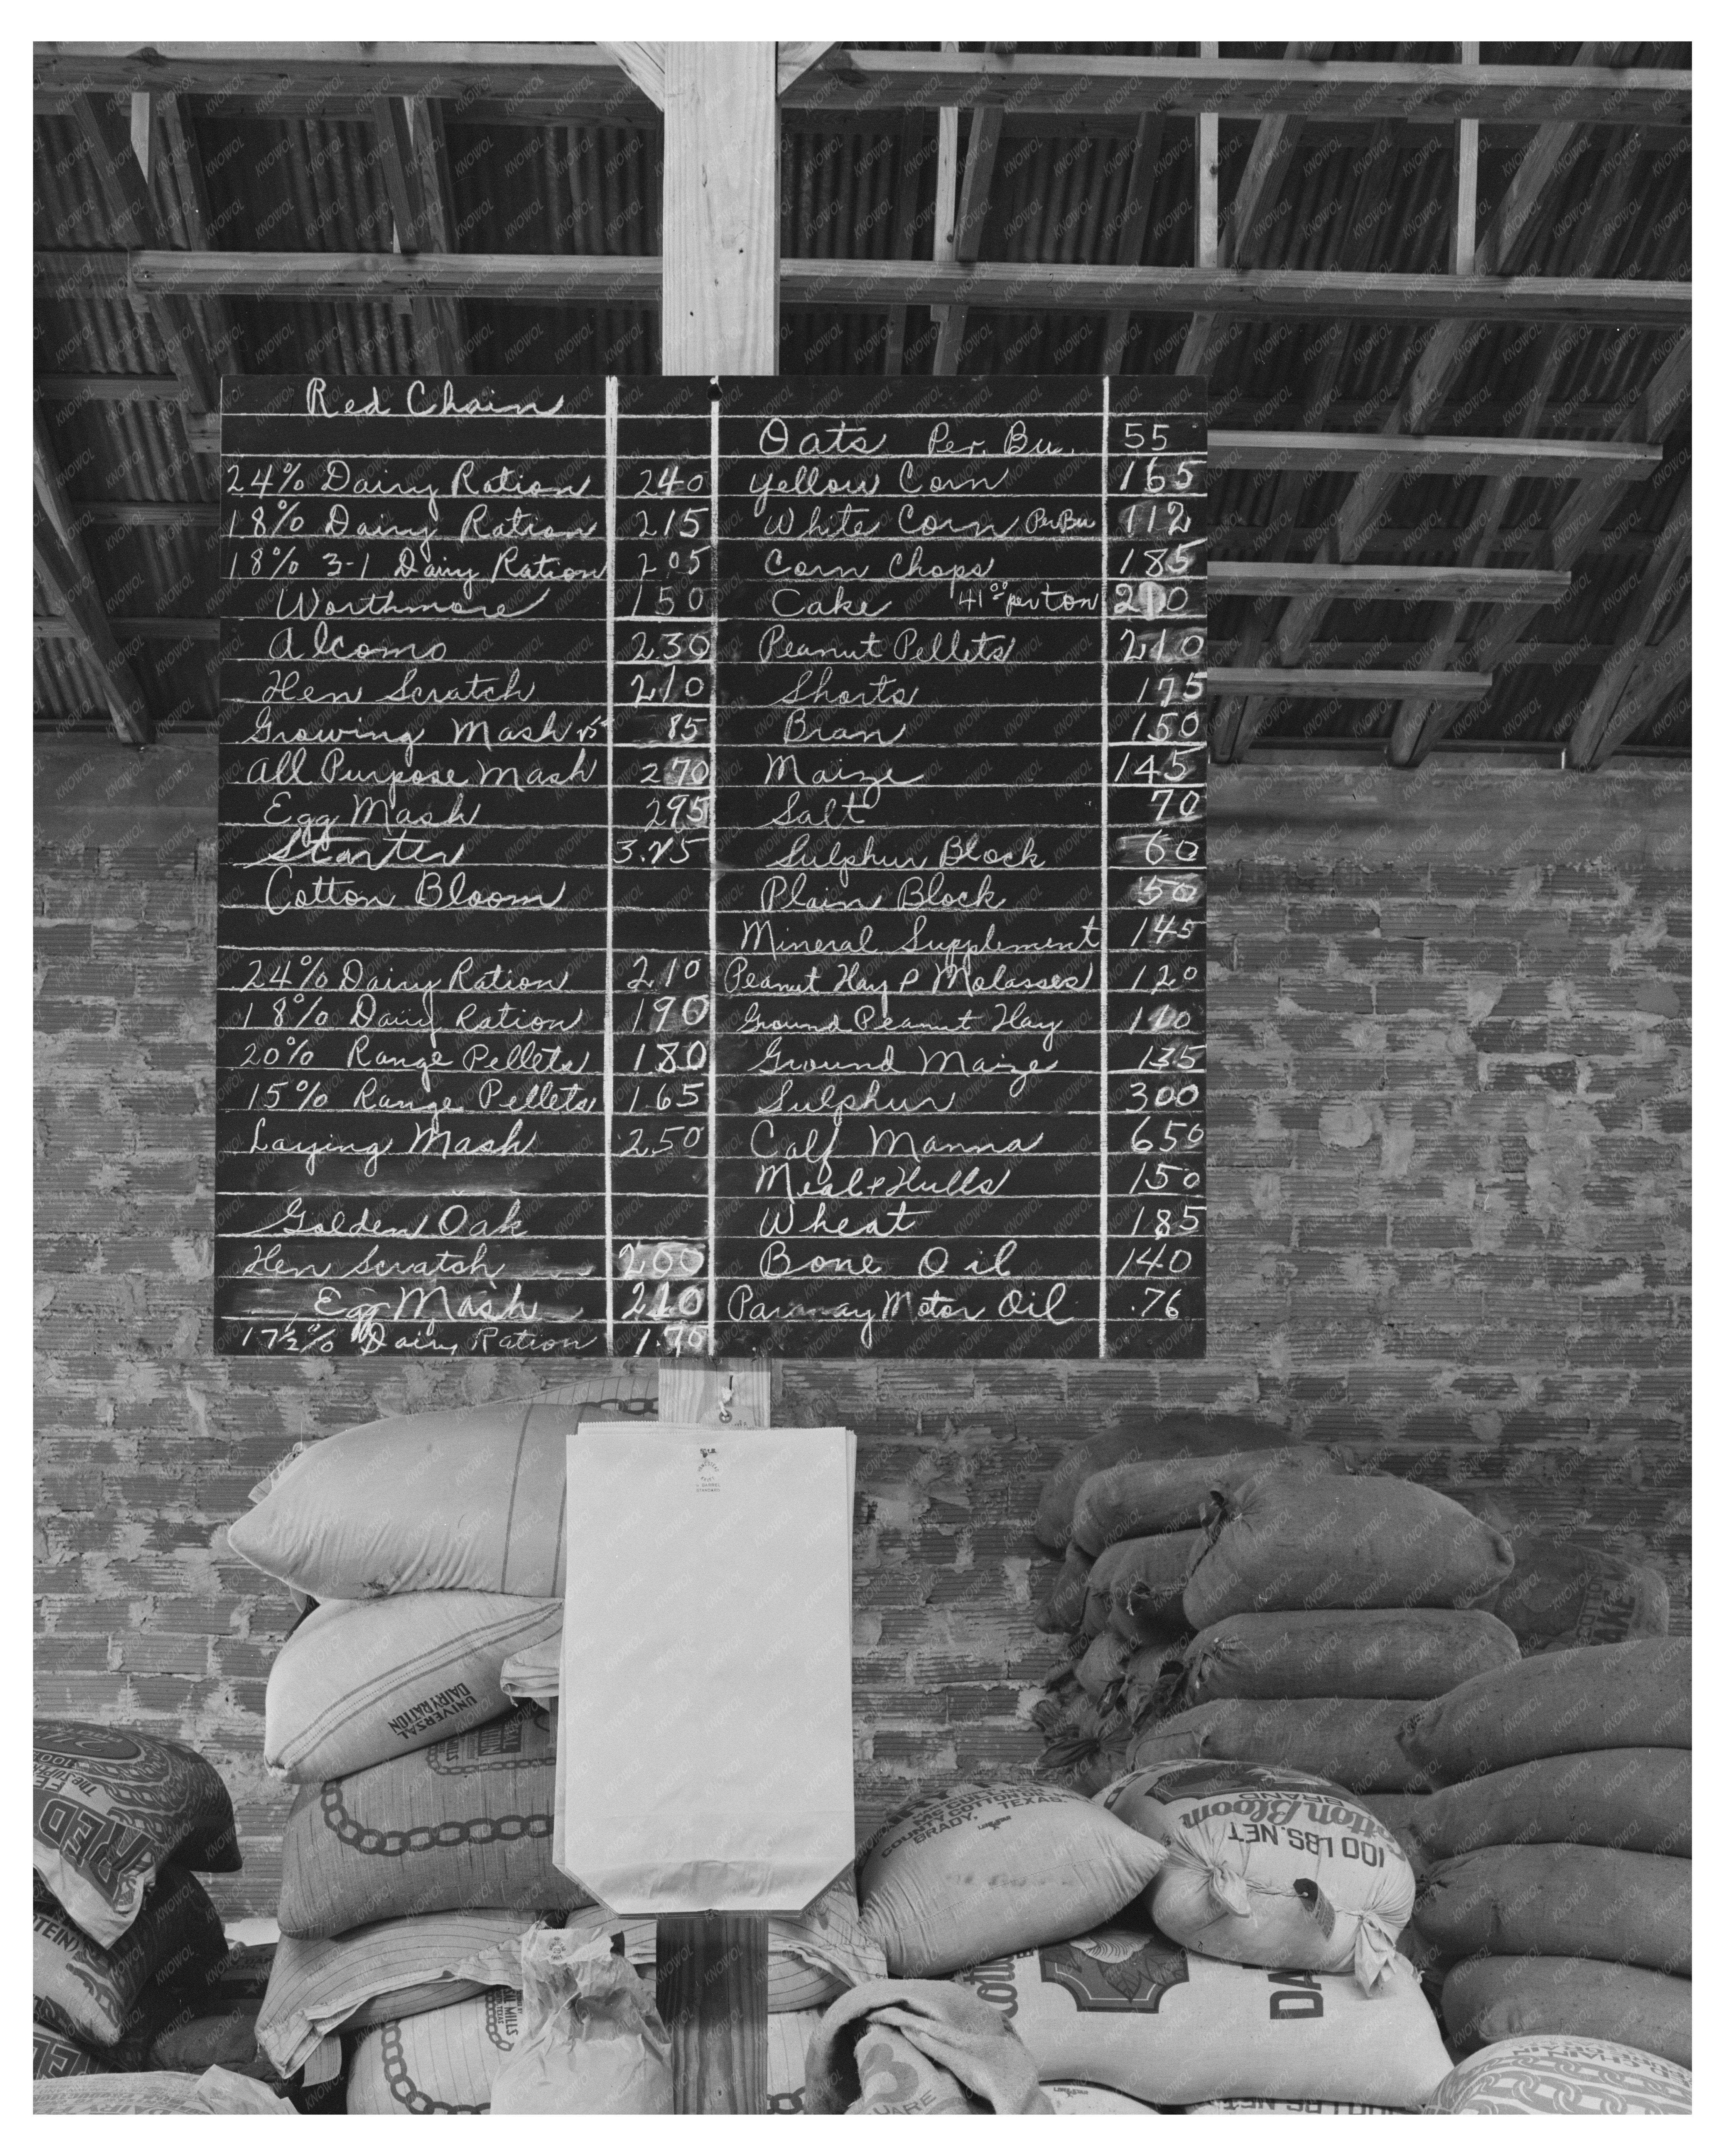 Red Chain
24% Dairy Ration 240
18% Dairy Ration 215
18% 3-1 Dairy Ration 205
Worthmore 150
Alcomo 230
Hen Scratch 210
Growing Mash 85
All Purpose Mash 270
Egg Mash 295
Starter 3.25
Cotton Bloom
24% Dairy Ration 210
18% Dairy Ration 190
20% Range Pellets 180
15% Range Pellets 1.65
Laying Mash 2.50
Golden Oak
Hen Scratch 200
Egg Mash 210
17½% Dairy Ration 1.70
Oats Per. Bu. 55
Yellow Corn 165
White Corn Per Bu 112
Corn Chops 185
Cake 41⁰⁰ per ton
Peanut Pellets 210
Shorts 175
Bran 150
Maize 145
Salt 70
Sulphur Block 60
Plain Block 50
Mineral Supplement 145
Peanut Hay & Molasses 120
Ground Peanut Hay 110
Ground Maize 135
Sulphur 300
Calf Manna 650
Meal & Hulls 150
Wheat 185
Bone Oil 140
Motor Oil .76
UNIVERSAL
DAIRY RATION
RED
COUNTY COTTON OIL
BRADY, TEXAS.
Cotton Bloom
BRAND
100 LBS. NET
KNOWOL